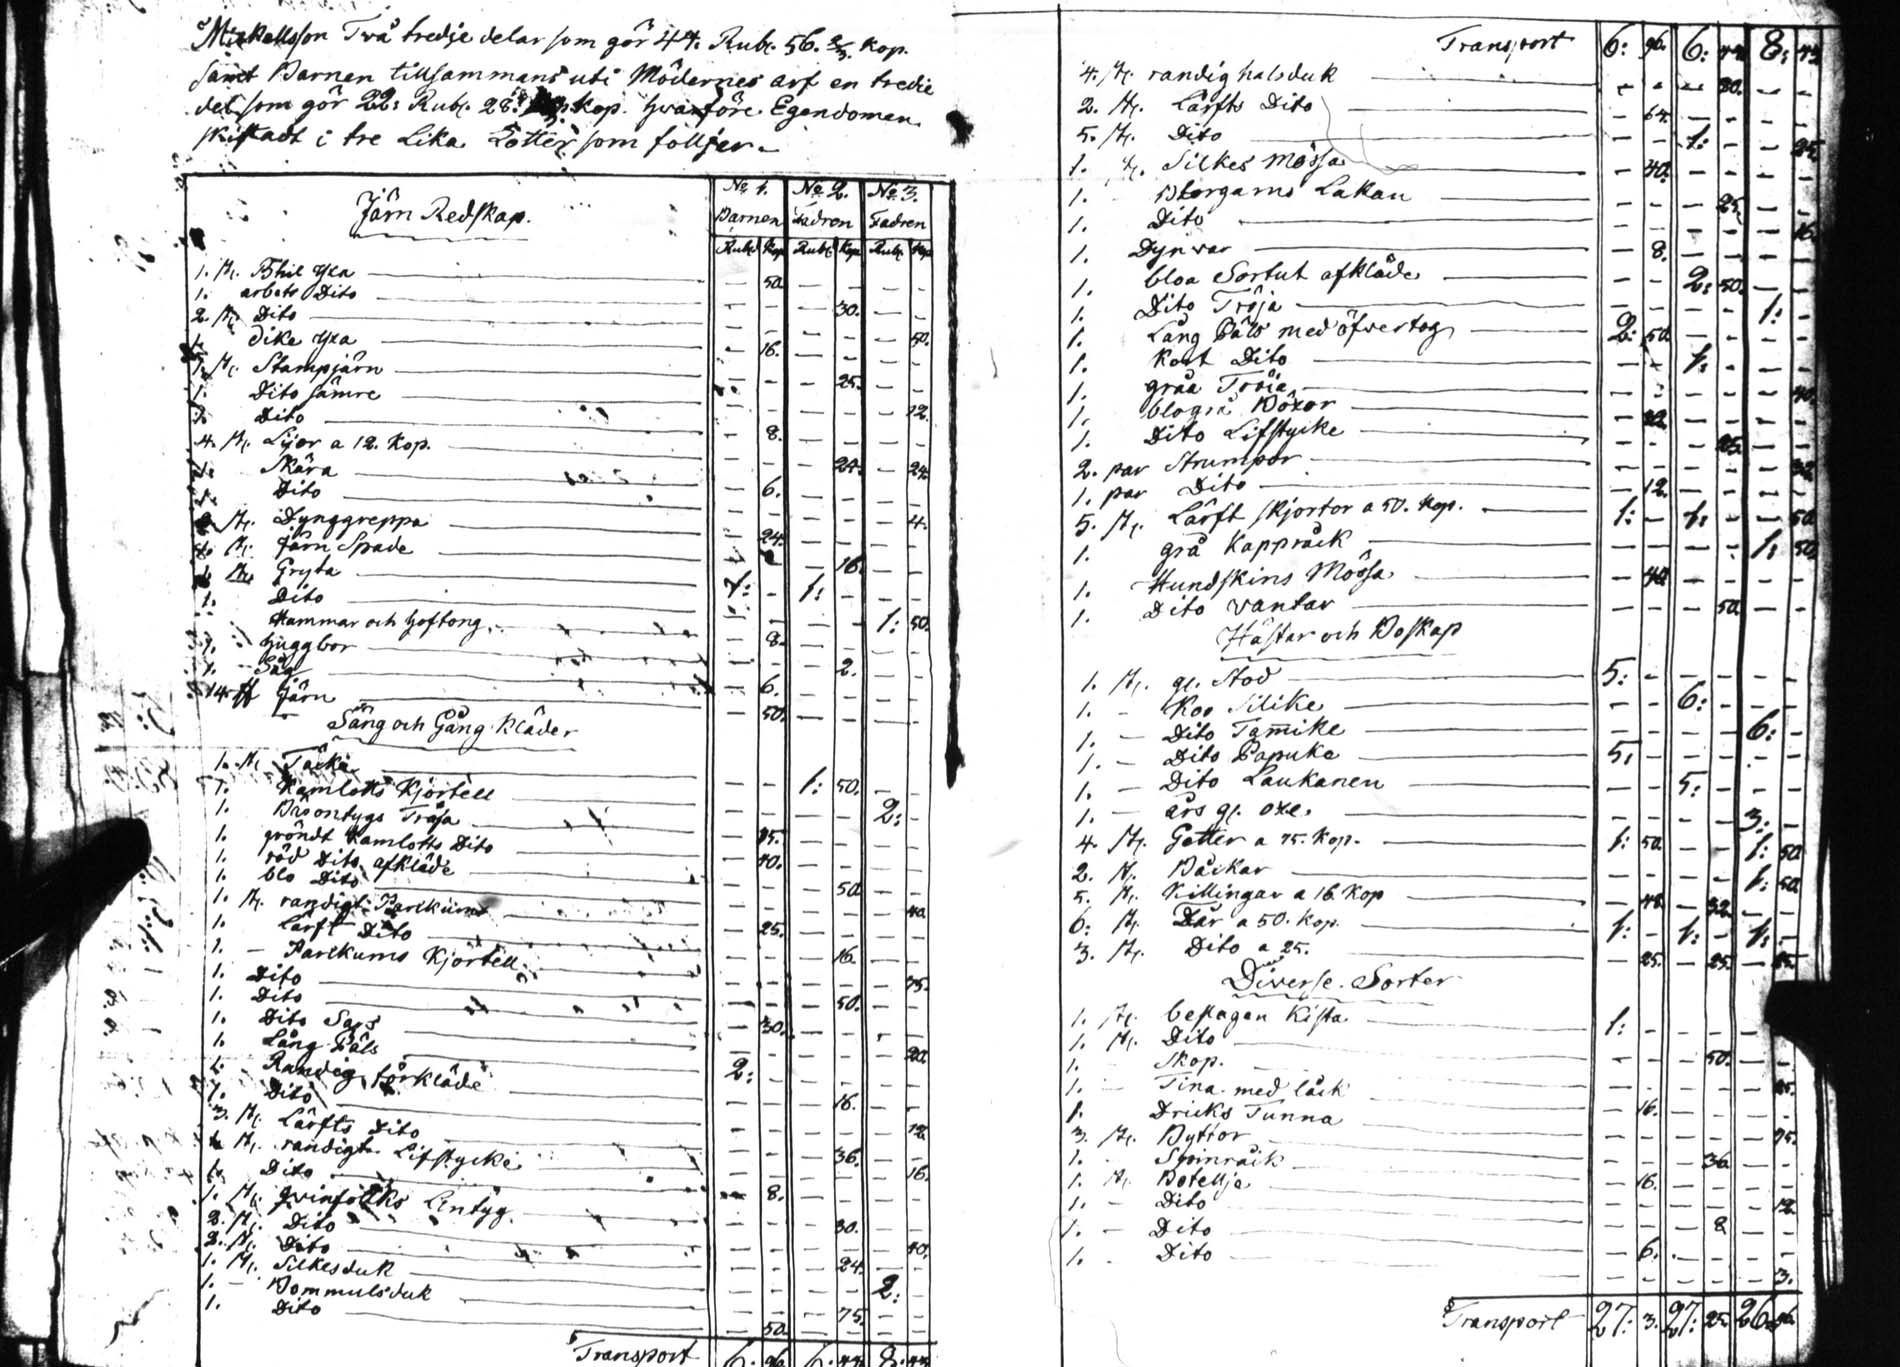 Mickellsson Två tredje delar som gör 44. Rubl. 56. 2/3. Kop.
samt Barnen tillsammans uti Mödernes arf en tredie
del som gör 22: Rubl. 28. Kop. hvarföre Egendomen
skiftadt i tre Lika Lotter som följer.
Järn Redskap.
No 1. No 2. No 3.
Barnen Fadren Fadren
Rubl Kop Rubl Kop Rubl Kop
1. st. Bhil yxa 50.
1. arbets Dito 30.
2. st. Dito 50.
1. dike yxa 16.
st. Stampjärn 25.
1. Dito sämre 12.
Dito 8.
4. st. Lijor a 12. Kop. 24. 24.
1. Skära 6.
Dito 4.
st. Dynggreppa 24.
st. Järn Spade 16.
Gryta 1: 1:
1. Dito 1: 50.
Hammar och hoftong 8.
huggbor 2.
1. Såg 6.
14 Järn 50.
Säng och Gång Kläder
1. st. Täcke 1: 50.
1. Kamlotts Kjortell 2:
1. Tröja
1. gröndt Kamlotts Dito 40.
1. röd Dito afkläde 50.
1. blo Dito 40.
1. st. randigt
1. Lärft Dito 25.
1. — Kjortell 16.
1. Dito 75.
1. Dito 50.
1. Dito 30.
1. Lång Päls 2:
1. Randig förkläde 16.
1. Dito 12.
3. st. Lärfts Dito 36.
st. randigt Lifstycke 16.
1. Dito 8.
1. st. qvinfolks Lintyg 30.
2. st. Dito 40.
2. st. Dito 24.
1. st. Silkesduk 2:
1. — Bommulsduk 75.
1. Dito 50.
Transport 6: 96. 6: 8:
Transport 6: 96. 6: 8:
4. st. randig halsduk 80.
2. st. Lärfts Dito 64.
5. st. Dito 1: 25.
1. st. Silkes Mössa 40.
1. Blorgarns Lakan 25.
1. Dito 16.
1. Dynvar 8.
1. bloa Sortut afkläde 2: 50.
1. Dito Tröja 1:
1. Lång Päls med öfvertog 2: 50.
1. Kort Dito 1:
1. gråa Tröia 40.
1. blogrå Böxor
1. Dito Lifstycke 25.
2. par Strumpor 32.
1. par Dito 12.
5. st. Lärft skjortor a 50. Kop. 1: 1: 50.
1. grå Kappråck 1: 50.
1. Hundskins Mössa 40.
1. Dito vantar 50.
Hästar och Boskap
1. st. gl. Stod 5:
1. — Koo Silike 6:
1. — Dito Tamike 6:
1. — Dito Papuka 5:
1. — Dito Laukanen 5:
1. — års gl. oxe. 3:
4. st. Getter a 75. Kop. 1: 50. 1: 50.
2. st. Båckar 1: 50.
5. st. Killingar a 16 Kop 48. 32.
6: st. Får a 50. Kop. 1: 1: 1:
3. st. Dito a 25. 25. 25. 25.
Diverse Sorter
1. st. beslagen Kista 1:
1. st. Dito 50.
1. Skop.
1. — Tina med låck 16.
1. Dricks Tunna 75.
3. st. Byttor 36.
1. Spinråck 16.
1. st. Botellja 12.
1. — Dito 8
1. — Dito 6.
1. Dito 3.
Transport 27: 3. 27: 25. 26: 96.